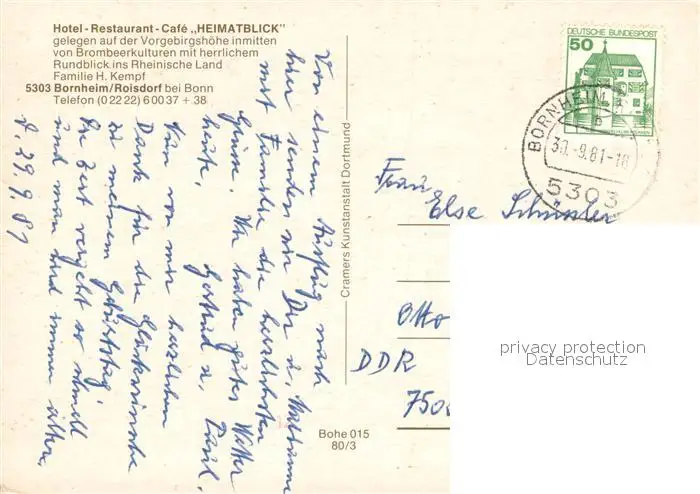 Hotel-Restaurant-Café „HEIMATBLICK"
gelegen auf der Vorgebirgshöhe inmitten
von Brombeerkulturen mit herrlichem
Rundblick ins Rheinische Land
Familie H. Kempf
5303 Bornheim/Roisdorf bei Bonn
Telefon (02222) 60037 + 38
Von einem Ausflug nach
hier senden wir Dir u.
mit Familie die herzlichsten
Grüsse. Wir haben gutes Wetter
heute. Gertrud u. Paul.
Nun von mir herzlichen
Dank für die Glückwünsche
zu meinem Geburtstag!
Die Zeit vergeht so schnell
und man wird immer älter.
d. 29.9.81
Cramers Kunstanstalt Dortmund
Bohe 015
80/3
50
DEUTSCHE BUNDESPOST
BORNHEIM
30.-9.81-18
5303
Frau
Else Schüssler
Otto
DDR
750
privacy protection
Datenschutz